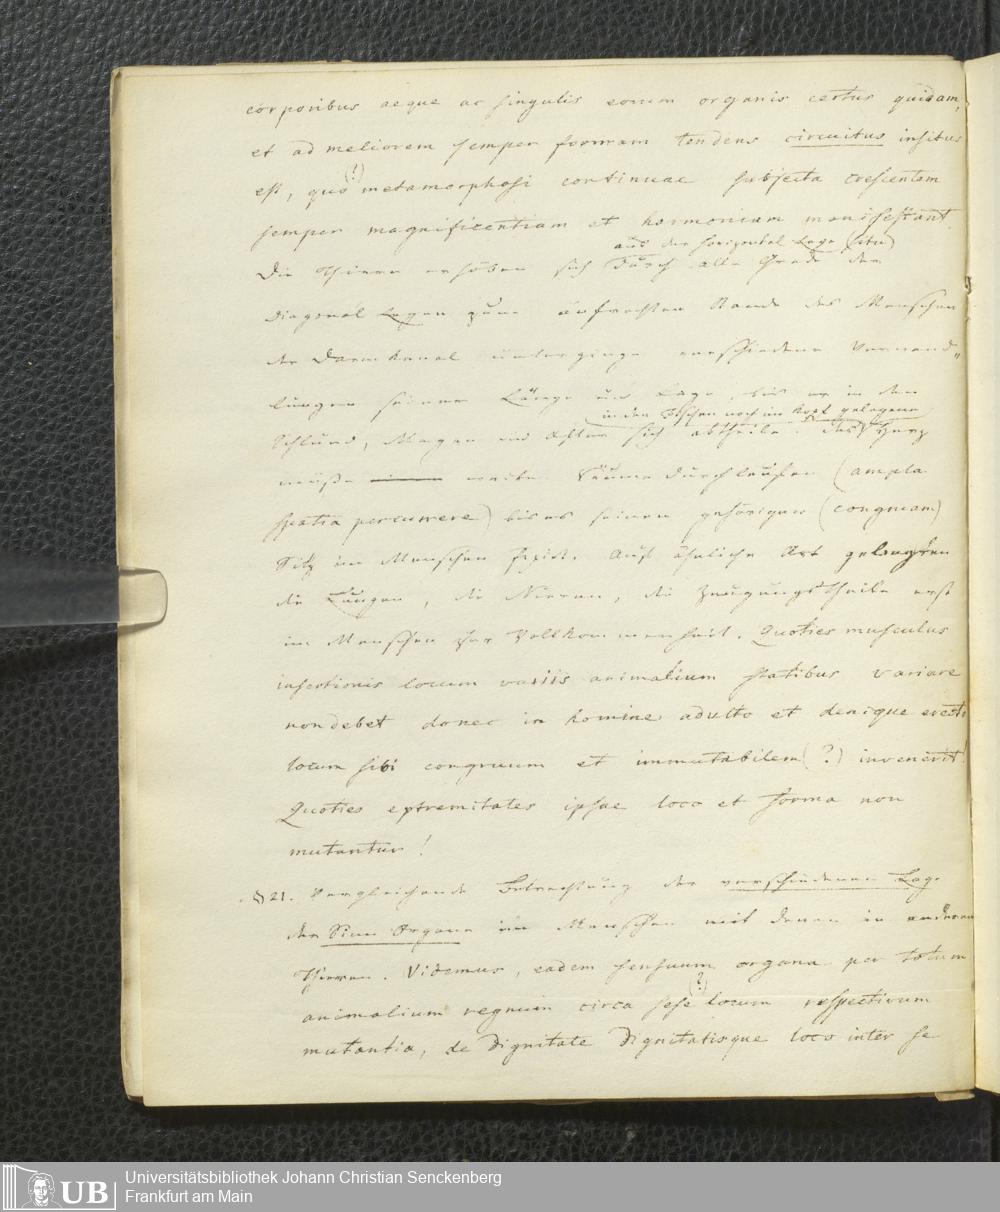 corporibus aeque ac singulis eorum organis certus quidam,
et ad meliorem semper formam tendens circuitus insitus
est, quo (?) metamorphosi continuae subjecta crescentem
semper magnificentiam et harmoniam manifestant.
aus der horizontal Lage (situ)
Die Thiere erhöben sich durch alle Grade der
diagonal Lagen zum aufrechten Stande des Menschen
der Darmkanal unterginge verschiedene Verwand„
lungen seiner Länge und Lage, bis er in den
in den Fischen noch im Kopf gelegene
Schlund, Magen und After sich abtheile. das Herz
müsse weite Räume durchlaufen (ampla
spatia percurrere) bis es seinen gehörigen (congruam)
Sitz im Menschen fixirt. Auf ähnliche Art gelangten
die Lungen, die Nieren, die Zeugungstheile erst
im Menschen zur Vollkommenheit. Quoties musculus
insertionis locum variis animalium statibus variare
non debet donec in homine adulto et denique erecto
locum sibi congruum et immutabilem (?) invenerit!
Quoties extremitates ipsae loco et forma non
mutantur!
§ 21. Vergleichende Betrachtung der verschiedenen Lage
der Sinn Organe im Menschen mit denen in anderen
Thieren. Videmus, eadem sensuum organa per totum
animalium regnum circa sese (?) locum respectivum
mutantia, de dignitate dignitatisque loco inter se
Universitätsbibliothek Johann Christian Senckenberg
Frankfurt am Main
UB